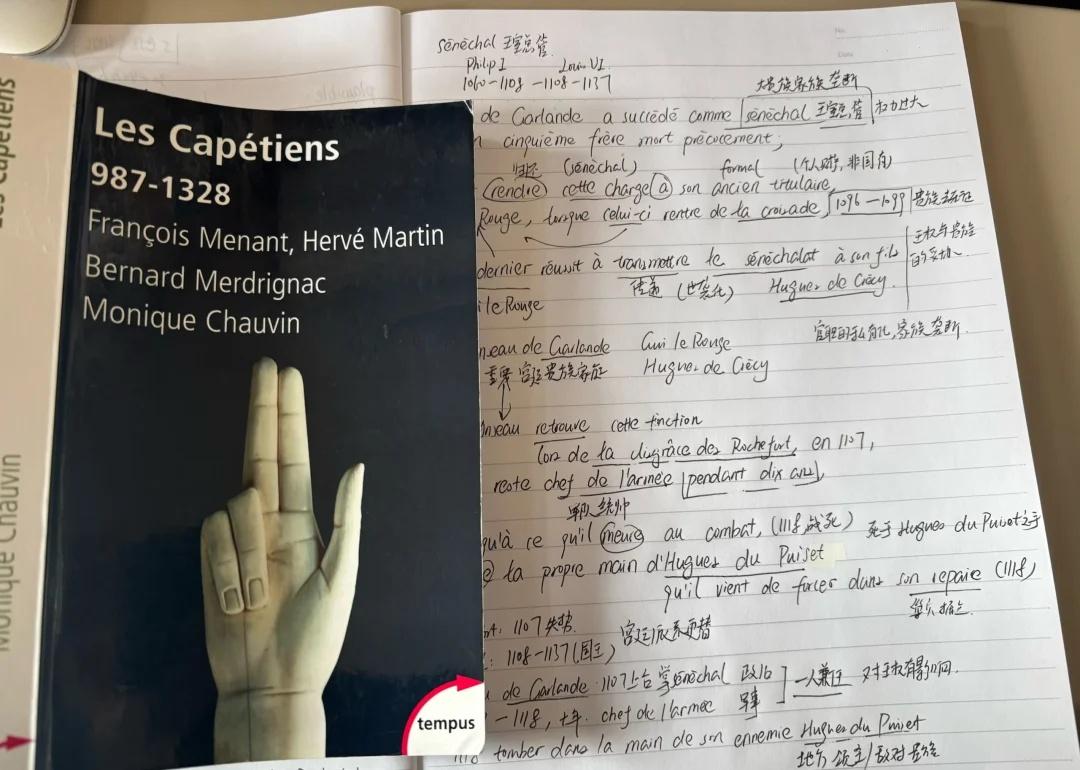 Les Capétiens
987-1328
François Menant, Hervé Martin
Bernard Merdrignac
Monique Chauvin
tempus
Les Capétiens
Monique Chauvin
Sénéchal 王室总管
Philip I Louis VI
1060-1108-1108-1137
贵族家族垄断
de Garlande a succédé comme sénéchal 王室总管 权力过大
cinquième frère mort précocement;
归还 (sénéchal) formal (个人财产, 非国有)
rendre cette charge à son ancien titulaire,
Rouge, lorsque celui-ci rentre de la croisade, 1096-1099
dernier réussit à transmettre le sénéchalat à son fils
王权与贵族
传递 (世袭化) Hugues de Crécy.
le Rouge
官职的私有化, 家族垄断.
de Garlande Gui le Rouge
重要宫廷贵族家族 Hugues de Crécy
retrouve cette fonction
lors de la disgrâce des Rochefort, en 1107,
reste chef de l'armée pendant dix ans,
军队统帅
qu'à ce qu'il meure au combat, (1118, 战死) 死于 Hugues du Puiset 之手
la propre main d'Hugues du Puiset
qu'il vient de forcer dans son repaire (1118)
1107 失势.
宫廷派系更替
1108-1137 (国王)
de Garlande 1107上台 掌sénéchal 政治 一人兼任 对王权有影响.
-1118, 十年. chef de l'armée 军事
tomber dans la main de son ennemie Hugues du Puiset
地方领主/敌对贵族